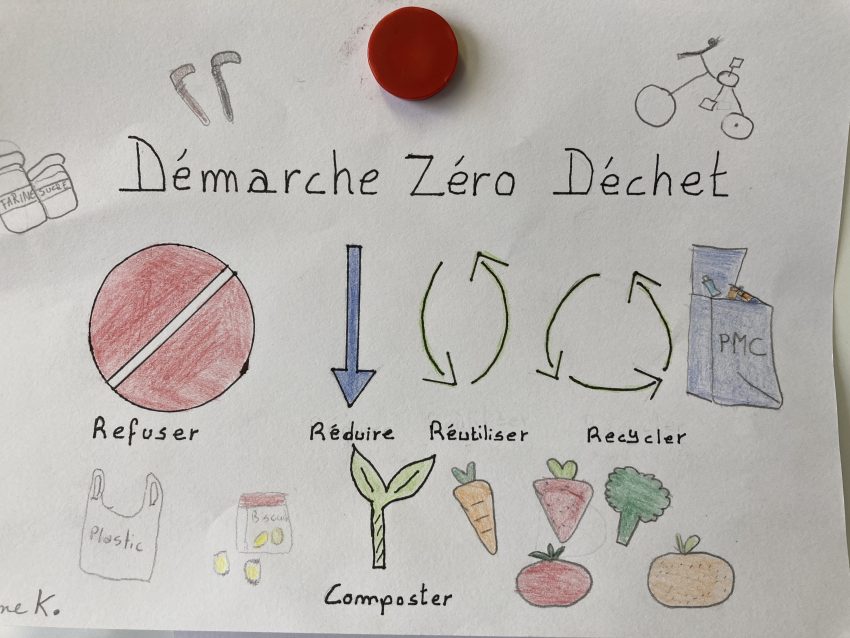 Démarche Zéro Déchet
FARINE
SUCRE
PMC
Refuser
Réduire
Réutiliser
Recycler
Plastic
Biscuit
Composter
K.